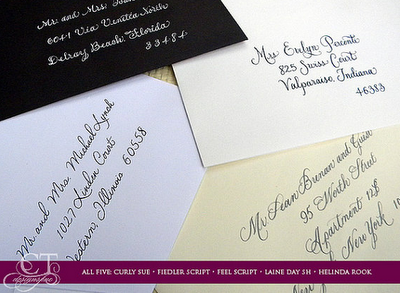 Mr. and Mrs.
6041 Via Venetia North
Delray Beach, Florida
33484
Mrs. Evelyn Parenti
825 Swiss Court
Valparaiso, Indiana
46383
Mr. and Mrs. Michael Lynch
1027 Linden Court
Western, Illinois 60558
Mr. Dean Brenan and Guest
95 North Street
Apartment
New York
CT
designs
ALL FIVE: CURLY SUE • FIEDLER SCRIPT • FEEL SCRIPT • LAINE DAY SH • HELINDA ROOK